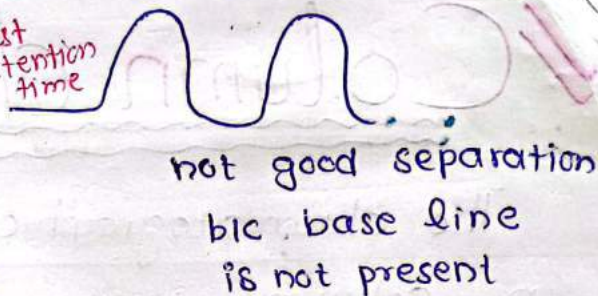 time
not good separation
b/c base line
is not present